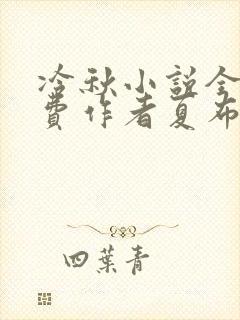 冷秋小説全
費作者夏布
四葉青